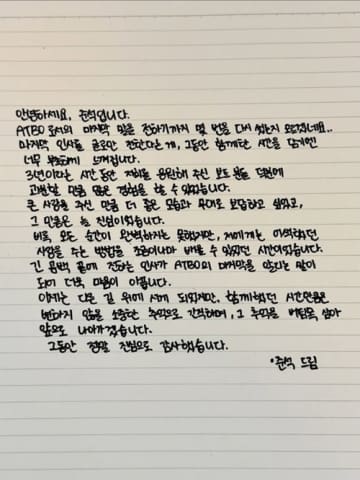 안녕하세요, 준석입니다.
ATBO로서의 마지막 말을 전하기까지 몇 번을 다시 썼는지 모르겠네요..
마지막 인사를 글로만 전한다는 게, 그동안 함께한 시간을 담기엔
너무 부족하게 느껴집니다.
3년이라는 시간 동안 저희를 응원해 주신 모든 분들 덕분에
과분할 만큼 많은 경험을 할 수 있었습니다.
큰 사랑을 주신 만큼 더 좋은 모습과 무대로 보답하고 싶었고,
그 마음은 늘 진심이었습니다.
비록 모든 순간이 완벽하지는 못했지만, 저에게는
사랑을 주는 방법을 조금이나마 배울 수 있었던 시간이었습니다.
긴 공백 끝에 전하는 인사가 ATBO의 마지막을 알리는 말이
되어 더욱 마음이 아픕니다.
이제는 다른 길 위에 서게 되었지만, 함께했던 시간만큼은
변하지 않을 소중한 추억으로 간직하며, 그 추억을 버팀목 삼아
앞으로 나아가겠습니다.
그동안 정말 진심으로 감사했습니다.
준석 드림